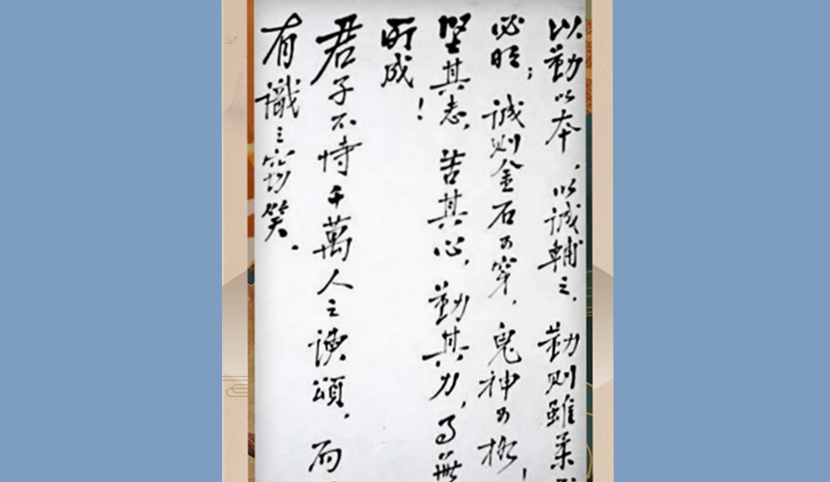 以勤为本，以诚輔之，勤则雖柔
必明；诚则金石可穿，鬼神可格，
坚其志，苦其心，勤其力，事無
所成！
君子不恃千萬人之諛頌，而
有識之窃笑。